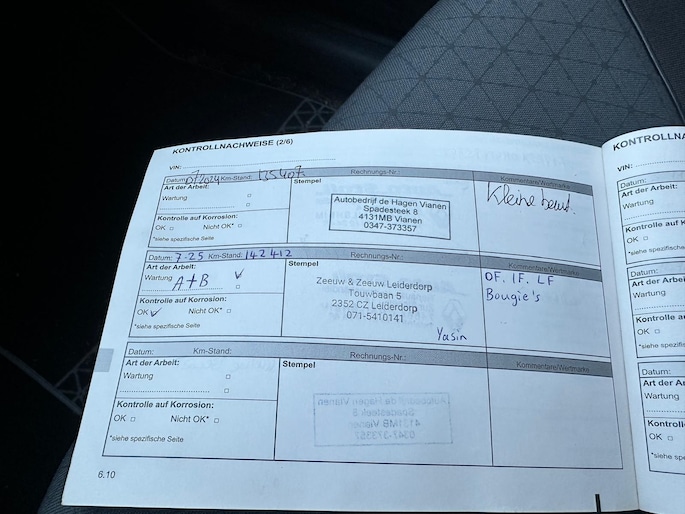 KONTROLLNACHWEISE (2/6)
VIN:
Datum: 07/2024 Km-Stand: Rechnungs-Nr.: Kommentare/Wertmarke
Art der Arbeit:
Wartung
Stempel
Autobedrijf de Hagen Vianen
Spadesteek 8
4131MB Vianen
0347-373357
Kleine beurt.
Kontrolle auf Korrosion:
OK Nicht OK*
*siehe spezifische Seite
Datum: 7-25 Km-Stand: 142412 Rechnungs-Nr.: Kommentare/Wertmarke
Art der Arbeit:
Wartung
A+B
Stempel
Zeeuw & Zeeuw Leiderdorp
Touwbaan 5
2352 CZ Leiderdorp
071-5410141
Yasin
OF. IF. LF
Bougie's
Kontrolle auf Korrosion:
OK Nicht OK*
*siehe spezifische Seite
Datum: Km-Stand: Rechnungs-Nr.: Kommentare/Wertmarke
Art der Arbeit:
Wartung
Stempel
Kontrolle auf Korrosion:
OK Nicht OK*
*siehe spezifische Seite
6.10
KONTROLLNA
VIN:
Datum:
Art der Arbeit:
Wartung
Kontrolle au
OK
*siehe spe
Datum:
Art der Arbei
Wartung
Kontrolle a
OK
*siehe spe
Datum:
Art der Ar
Wartung
Kontroll
OK
*siehe